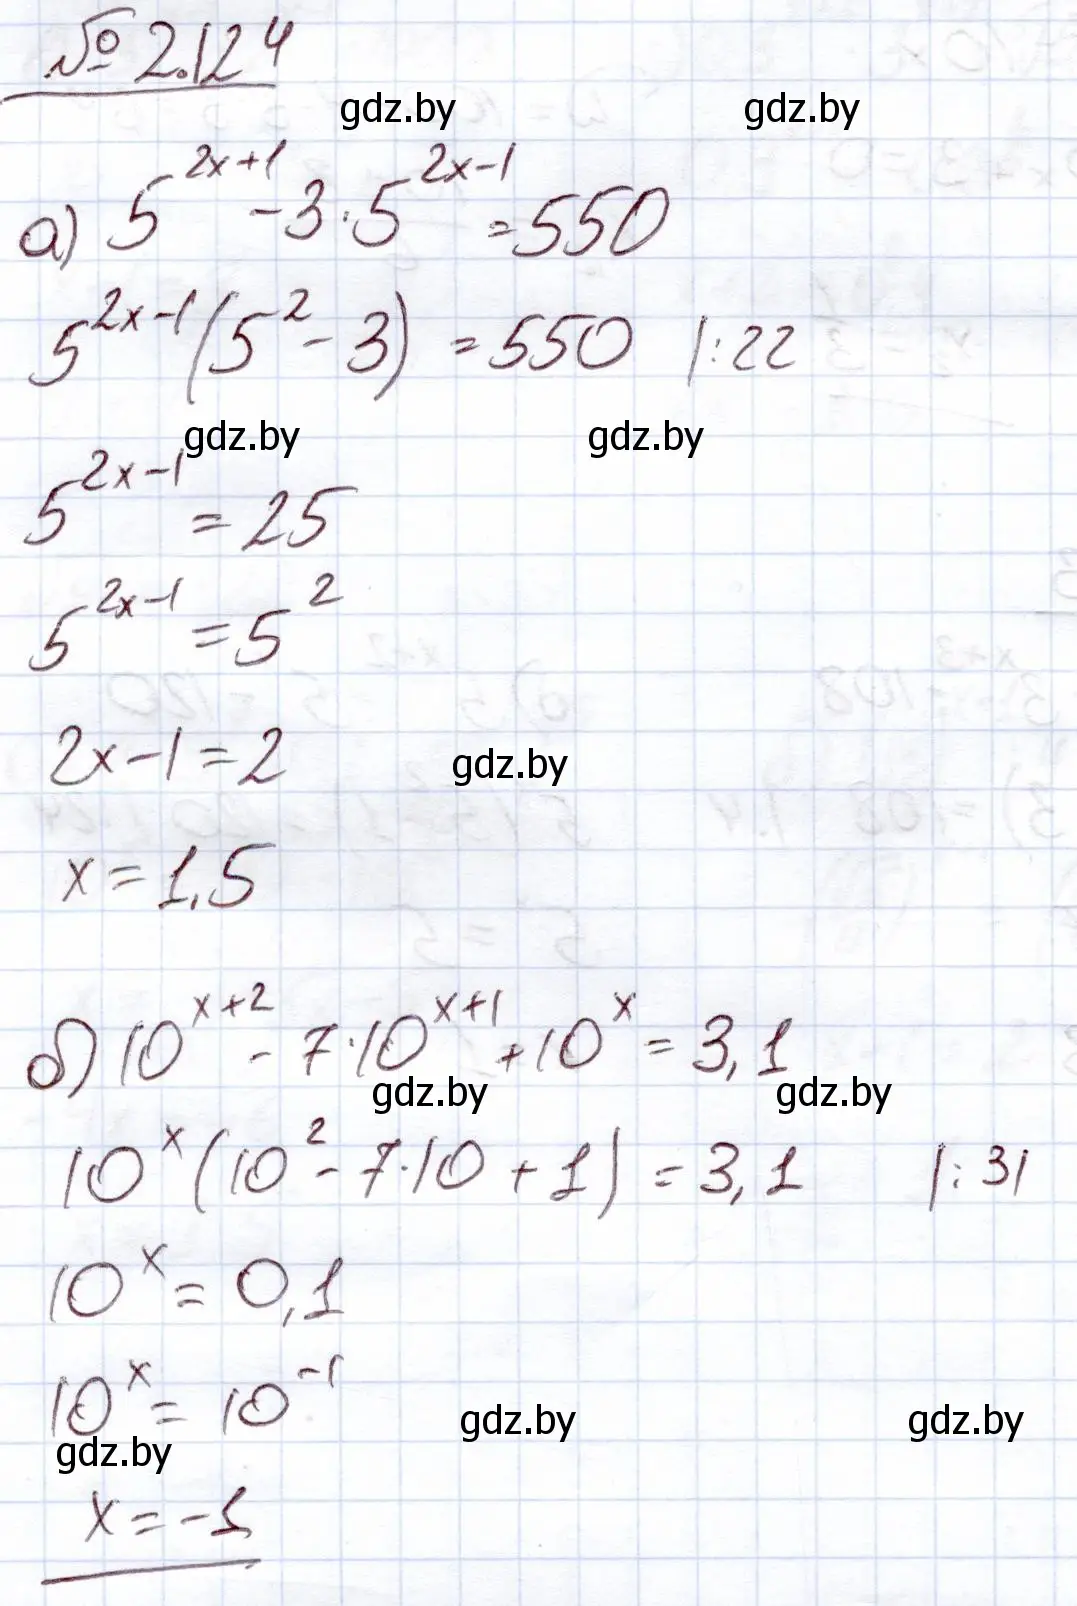 № 2.124
gdz.by gdz.by
а) 5^{2x+1} - 3·5^{2x-1} = 550
5^{2x-1}(5^2 - 3) = 550 |:22
gdz.by gdz.by
5^{2x-1} = 25
5^{2x-1} = 5^2
2x-1=2 gdz.by
x = 1,5
б) 10^{x+2} - 7·10^{x+1} + 10^x = 3,1
gdz.by gdz.by
10^x (10^2 - 7·10 + 1) = 3,1 |: 31
10^x = 0,1
10^x = 10^{-1}
gdz.by gdz.by
gdz.by
x = -1